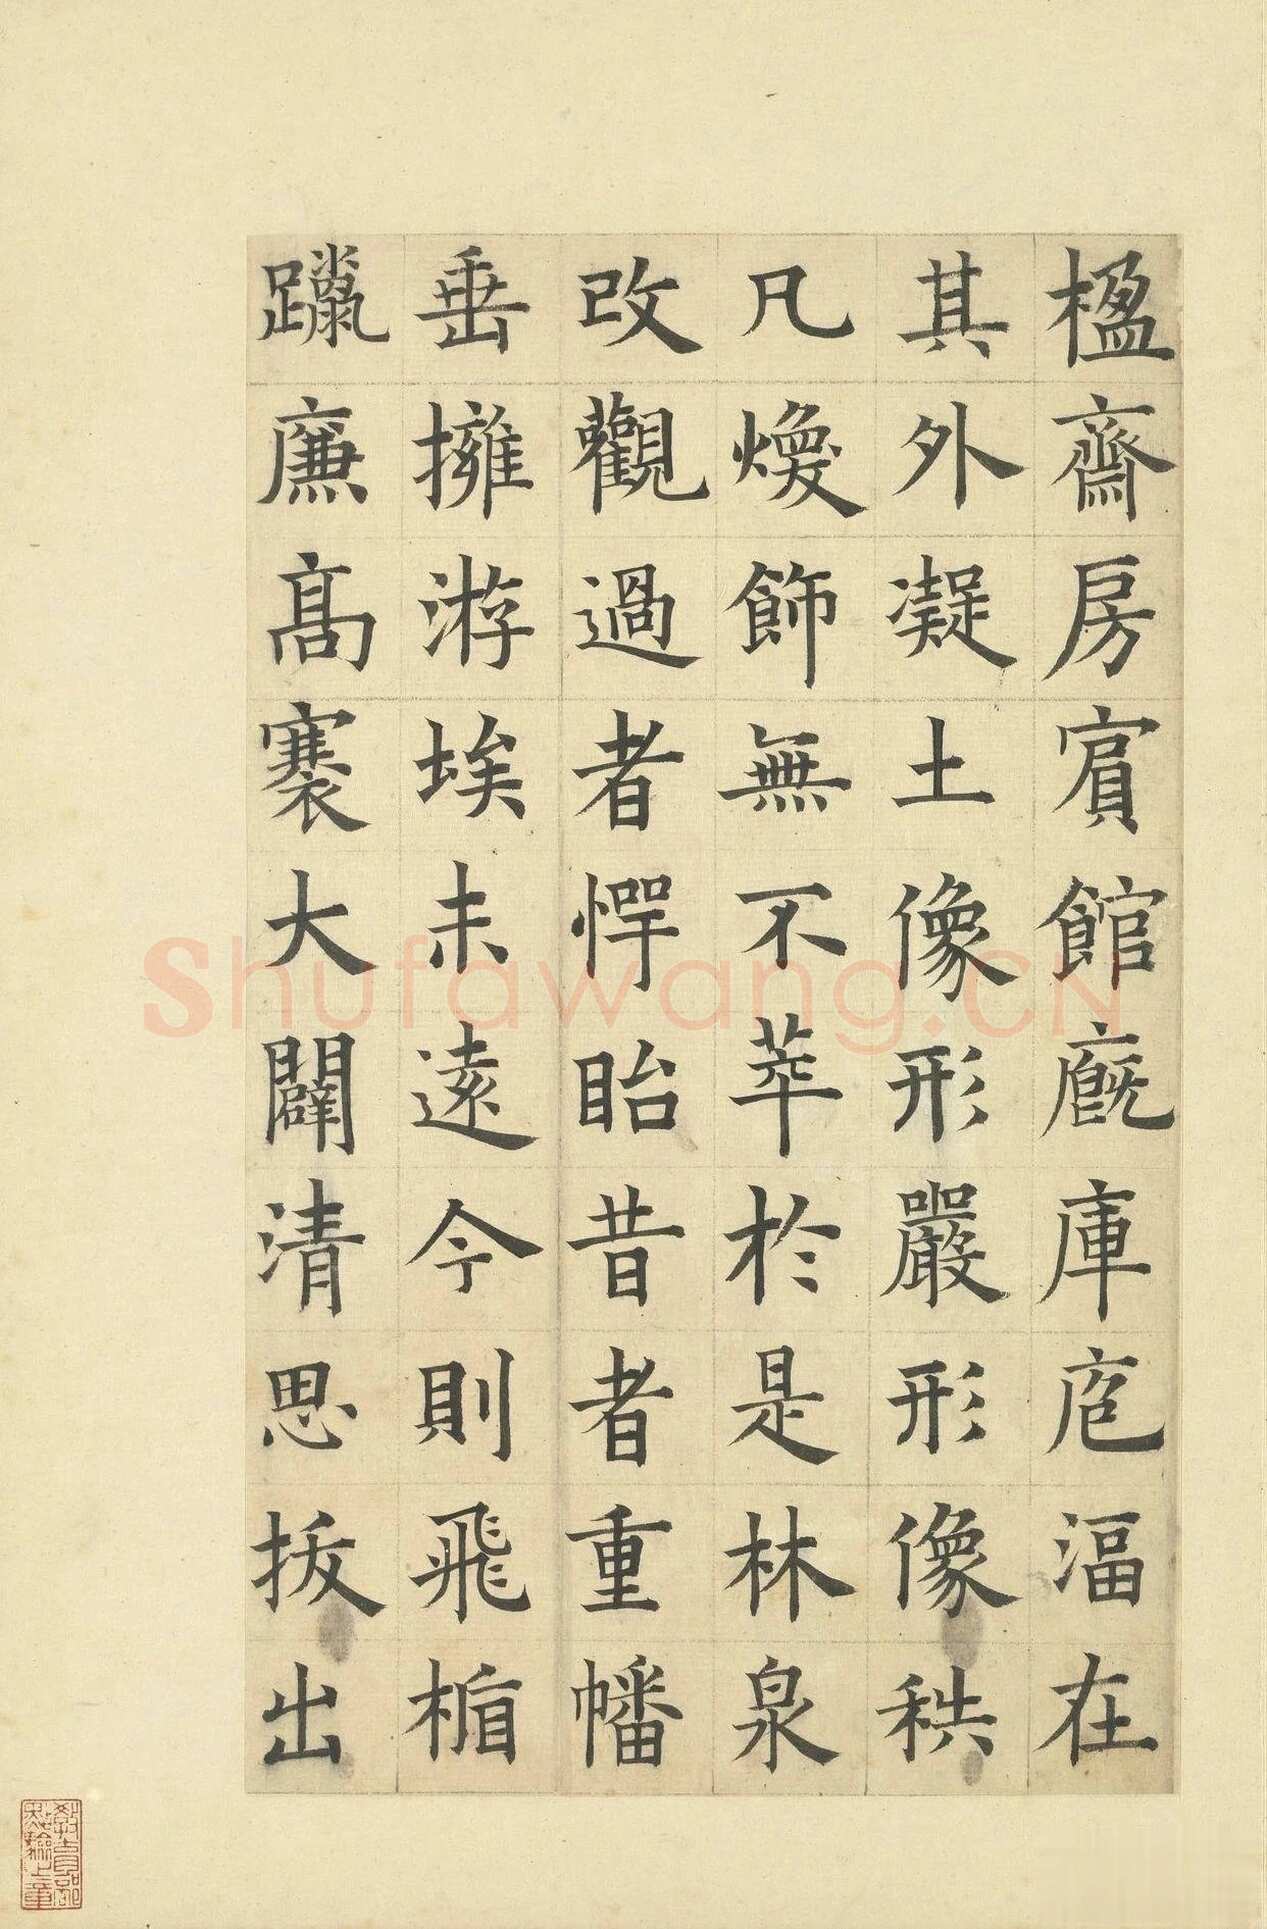 楹齋房賓館廐庫庖湢在
其外凝土像形嚴形像秩
凡煥飾無不萃於是林泉
改觀過者愕眙昔者重幡
垂擁游埃未遠今則飛楯
躐廡高褰大闢清思拔出
shufawang.CN
教育部點驗之章